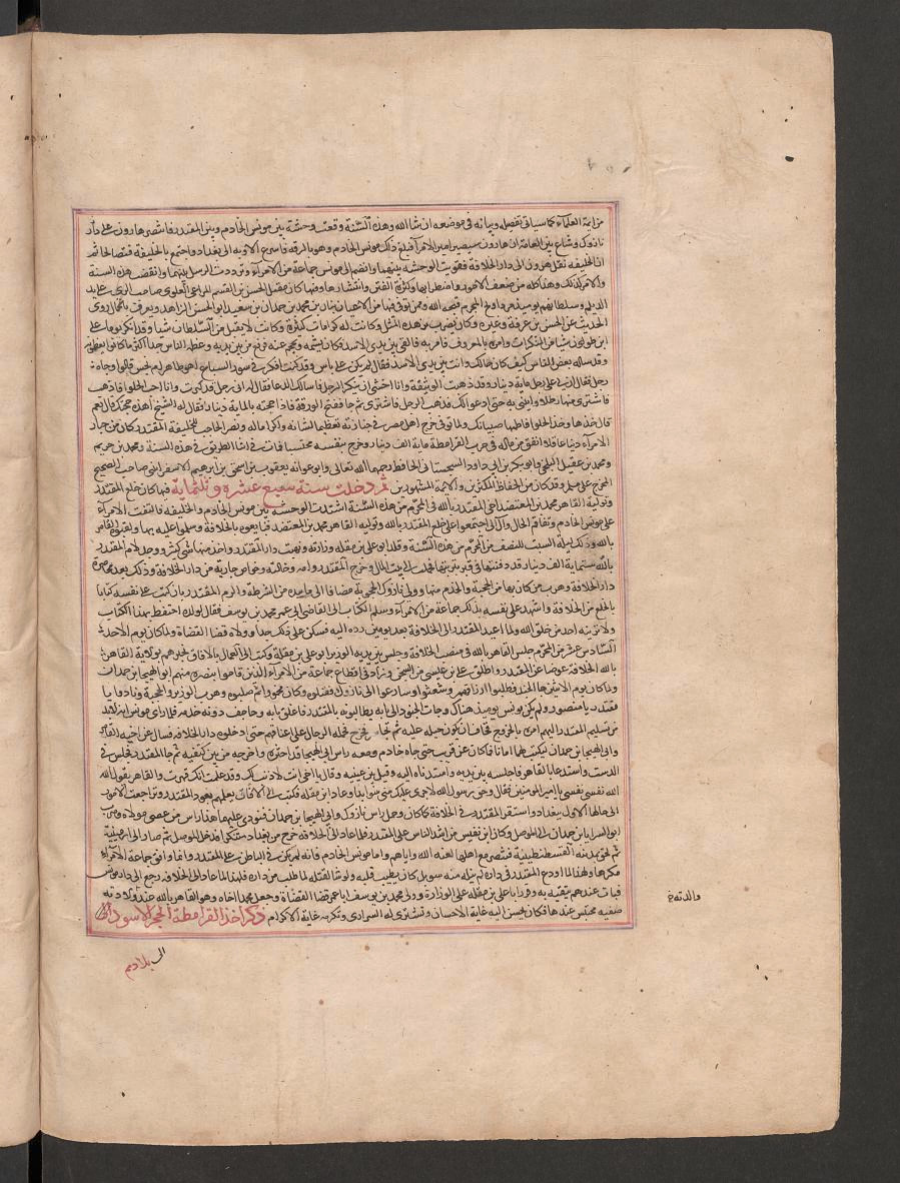 من ايمة العلماء كما سياتى تفصيله وبيانه فى موضعه ان شا الله وفى هذه السنة وقعت وحشة بين مونس الخادم وبين المقتدر فاستنصر هارون على دار
نازوك وشاع بين العامة ان هارون سيصير امير الامرآ فبلغ ذلك مونس الخادم وهو بالرقة فاسرع الاوبه الى بغداد واجتمع بالخليفة فتصالحا ثم
ان الخليفه نقل هرون الى دار الخلافة فقويت الوحشه بينهما وانضم الى مونس جماعة من الامرآء وترددت الرسل بينهما وانقضت هذه السنة
والامر كذلك وهذا كله من ضعف الامور واضطرابها وكثرة الفتن وانتشارها وفيها كان مقتل الحسن بن القسم الداعى العلوى صاحب الرى على يد
الديلم وسلطانهم يوميذ مرداويج المجرم قبحه الله وممن توفى فيها من الاعيان بنان بن محمد بن حمدان بن سعيد ابو الحسن الزاهد ويعرف بالحمال روى
الحديث عن الحسن بن عرفة وغيره وكان يضرب بزهده المثل وكانت له كرامات كثيرة وكانت لا يقبل من السلطان شيا وقد انكر يوما على
ابن طولون شيا من المنكرات وامره بالمعروف فامر به فالقى بين يدى الاسد فكان يشمه ويحجم عنه فرفع من بين يديه وعظمه الناس جدا
وقد ساله بعض الناس كيف كان حالك وانت بين يدى الاسد فقال لم يكن على باس وقد كنت افكر فى سور السباع اهو طاهر ام نجس قالوا وجاه
رجل فقال ان لى على رجل ماية دينار وقد ذهبت الوثيقة وانا اخشى ان ينكر الرجل فاسالك الدعا فقال له انى رجل قد كبرت وانا احب الحلوا فاذهب
فاشترى منها رطلا وايتنى به حتى ادعو لك فذهب الرجل فاشترى ثم جا ففتح الورقة فاذا حجته بالماية دينار فقال له الشيخ اهذه حجتك قال نعم
قال خذها وخذ الحلوا فاطعمها صبيانك ولما توفى خرج اهل مصر فى جنازته تعظيما لشانه واكراما له ونصر الحاجب للخليفة المقتدر كان من خيار
الامرآء دينا عاقلا انفق من ماله فى حرب القرامطة ماية الف دينار وخرج بنفسه محتسبا فمات فى اثنا الطريق فى هذه السنة ومحمد بن خريم
ومحمد بن عقيل البلخى وابو بكر بن ابى داود السجستانى الحافظ رحمهما الله تعالى وابو عوانه يعقوب بن اسحق بن ابرهيم الاسفراينى صاحب الصحيح
المخرج على مسلم وقد كان من الحفاظ المكثرين والايمة المشهورين ثم دخلت سنة سبع عشره وثلثماية فيها كان خلع المقتدر
وتولية القاهر محمد بن المعتضد اخى المقتدر بالله فى المحرم من هذه السنة اشتدت الوحشة بين مونس الخادم والخليفه فالتفت الامرآء
على مونس الخادم وتفاقم الحال وآل الى اجتمعوا على خلع المقتدر بالله وتوليه القاهر محمد بن المعتضد فبايعوه بالخلافة وسلموا عليه بها ولقبوه القاهر
بالله وذلك ليلة السبت للنصف من المحرم من هذه السنة وقلد ابو على بن مقله وزارته ونهبت دار المقتدر واخذ منها شى كثير ووجد لام المقتدر
بالله ستماية الف دينار قد دفنتها فى قبر بتربتها فحملت الى بيت المال وخرج المقتدر وامه وخالته وخواص جاريه من دار الخلافة وذلك بعد
دار الخلافة وهرب من كان بها من الحجبة والخدم منها وولى نازوك الحجبة مضافا الى ما بيده من الشرطة والزم المقتدر بان كتب على نفسه كتابا
بالخلع من الخلافة واشهد على نفسه بذلك جماعة من الامرآء وسلم الكتاب الى القاضى ابى عمر محمد بن يوسف فقال لولده احتفظ بهذا الكتاب
ولا ترينه احد من خلق الله ولما اعيد المقتدر الى الخلافة بعد يومين رده اليه فشكره على ذلك جدا وولاه قضا القضاة ولما كان يوم الاحد
السادس عشر من المحرم جلس القاهر بالله فى منصب الخلافة وجلس بين يديه الوزير ابو على بن مقلة وكتب الى العمال بالافاق يخبرهم بولاية القاهر
بالله الخلافة عوضا عن المقتدر واطلق على بن عيسى من السجن وزاد فى اقطاع جماعة من الامرآء الذين قاموا بنصره منهم ابو الهيجا بن حمدان
ولما كان يوم الاثنين جا الجند فطلبوا ارزاقهم وشغبوا وسارعوا الى نازوك فقتلوه وكان مخمورا ثم صلبوه وهرب الوزير والحجبة ونادوا يا
مقتدر يا منصور ولم يكن مونس يوميذ هناك وجات الجنود الى بابه يطالبونه بالمقتدر فاغلق بابه وحاجف دونه خدمه فلما راى مونس انه لا بد
من تسليم المقتدر اليهم امره بالخروج فخاف ان يكون حيله عليه ثم تجاسر فخرج فحمله الرجال على اعناقهم حتى ادخلوه دار الخلافه فسال عن اخيه القاهر
وابى الهيجا بن حمدان ليكتب لهما امانا فما كان عن قريب حتى جاه خادم ومعه راس ابى الهيجا قد احتزه واخرجه من بين كتفيه ثم جا المقتدر فجلس فى
الدست واستدعا بالقاهر فاجلسه بين يديه واستدناه اليه وقبل بين عينيه وقال يا اخى انت لا ذنب لك وقد علمت انك قهرت والقاهر يقول الله
الله نفسى نفسى يا امير المومنين فقال وحق رسول الله لا جرى عليك منى سو ابدا وعاد ابن مقلة فكتب الى الافاق يعلمهم بعود المقتدر وتراجعت الامور
الى حالها الاول ببغداد واستقر المقتدر فى الخلافة كما كان وحمل راس نازوك وابى الهيجا بن حمدان فنودى عليهما هذا راس من عصى مولاه وهرب
ابو السرايا بن حمدان الى الموصل وكان ابن نفيس من اشد الناس على المقتدر فلما عاد الى الخلافه خرج من بغداد متنكرا فدخل الموصل ثم صار الى ارمينية
ثم لحق بمدينة القسطنطينية فتنصر مع اهلها لعنه الله واياهم واما مونس الخادم فانه لم يكن فى الباطن على المقتدر وانما وافق جماعة الامرآء
مكرها ولهذا لما اودع المقتدر فى داره لم ينله منه سو بل كان يطيب قلبه ولو شا لقتله لما طلب من داره فلهذا لما عاد الى الخلافة رجع الى دار مونس
فبات عندهم لثقته به وقرر ابا على بن مقلة على الوزارة وولى محمد بن يوسف ابا عمر قضا القضاة وجعل محمدا اخاه وهو القاهر بالله عند والدته
صفيه محتبس عندها فكان يحسن اليه غاية الاحسان وتشترى له السرارى وتكرمه غاية الاكرام ذكر اخذ القرامطة الحجر الاسود الى
والدته
الى بلادهم